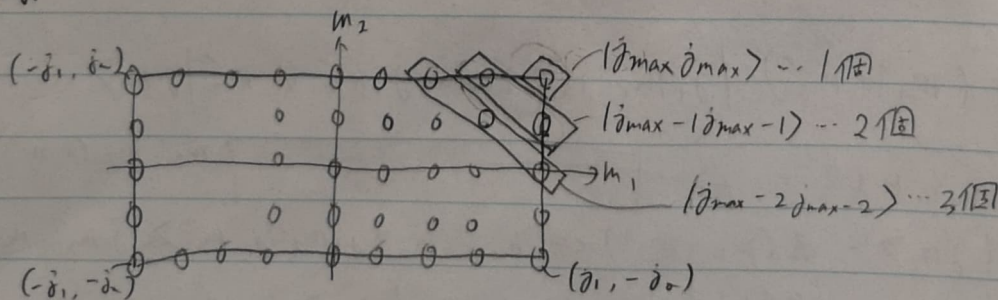 m₂
(-j₁, j₂)
|jmax jmax> … 1個
|jmax-1 jmax-1> … 2個
m₁
|jmax-2 jmax-2> … 3個
(-j₁, -j₂)
(j₁, -j₂)